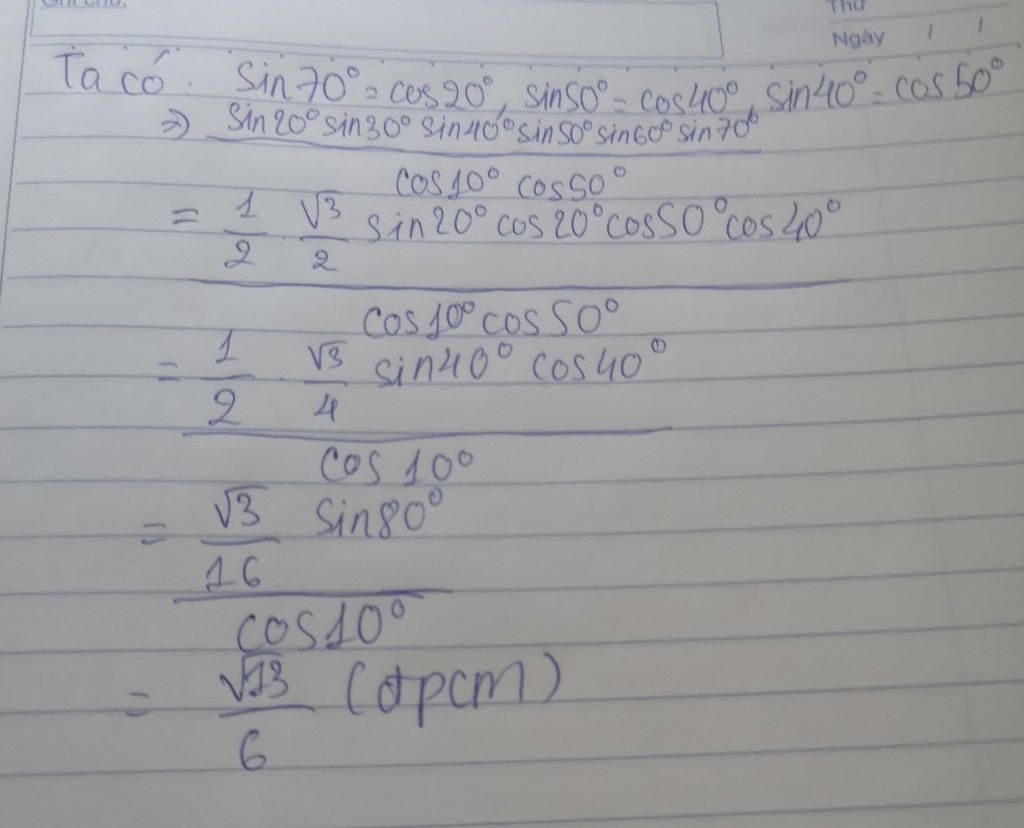 Ghi chú:
Thứ
Ngày / /
Ta có: sin70° = cos20°, sin50° = cos40°, sin40° = cos50°
⇒ sin20° sin30° sin40° sin50° sin60° sin70°
cos10° cos50°
= 1/2 √3/2 sin20° cos20° cos50° cos40°
cos10° cos50°
= 1/2 . √3/4 sin40° cos40°
cos10°
= √3/16 sin80°
cos10°
= √13/6 (đpcm)